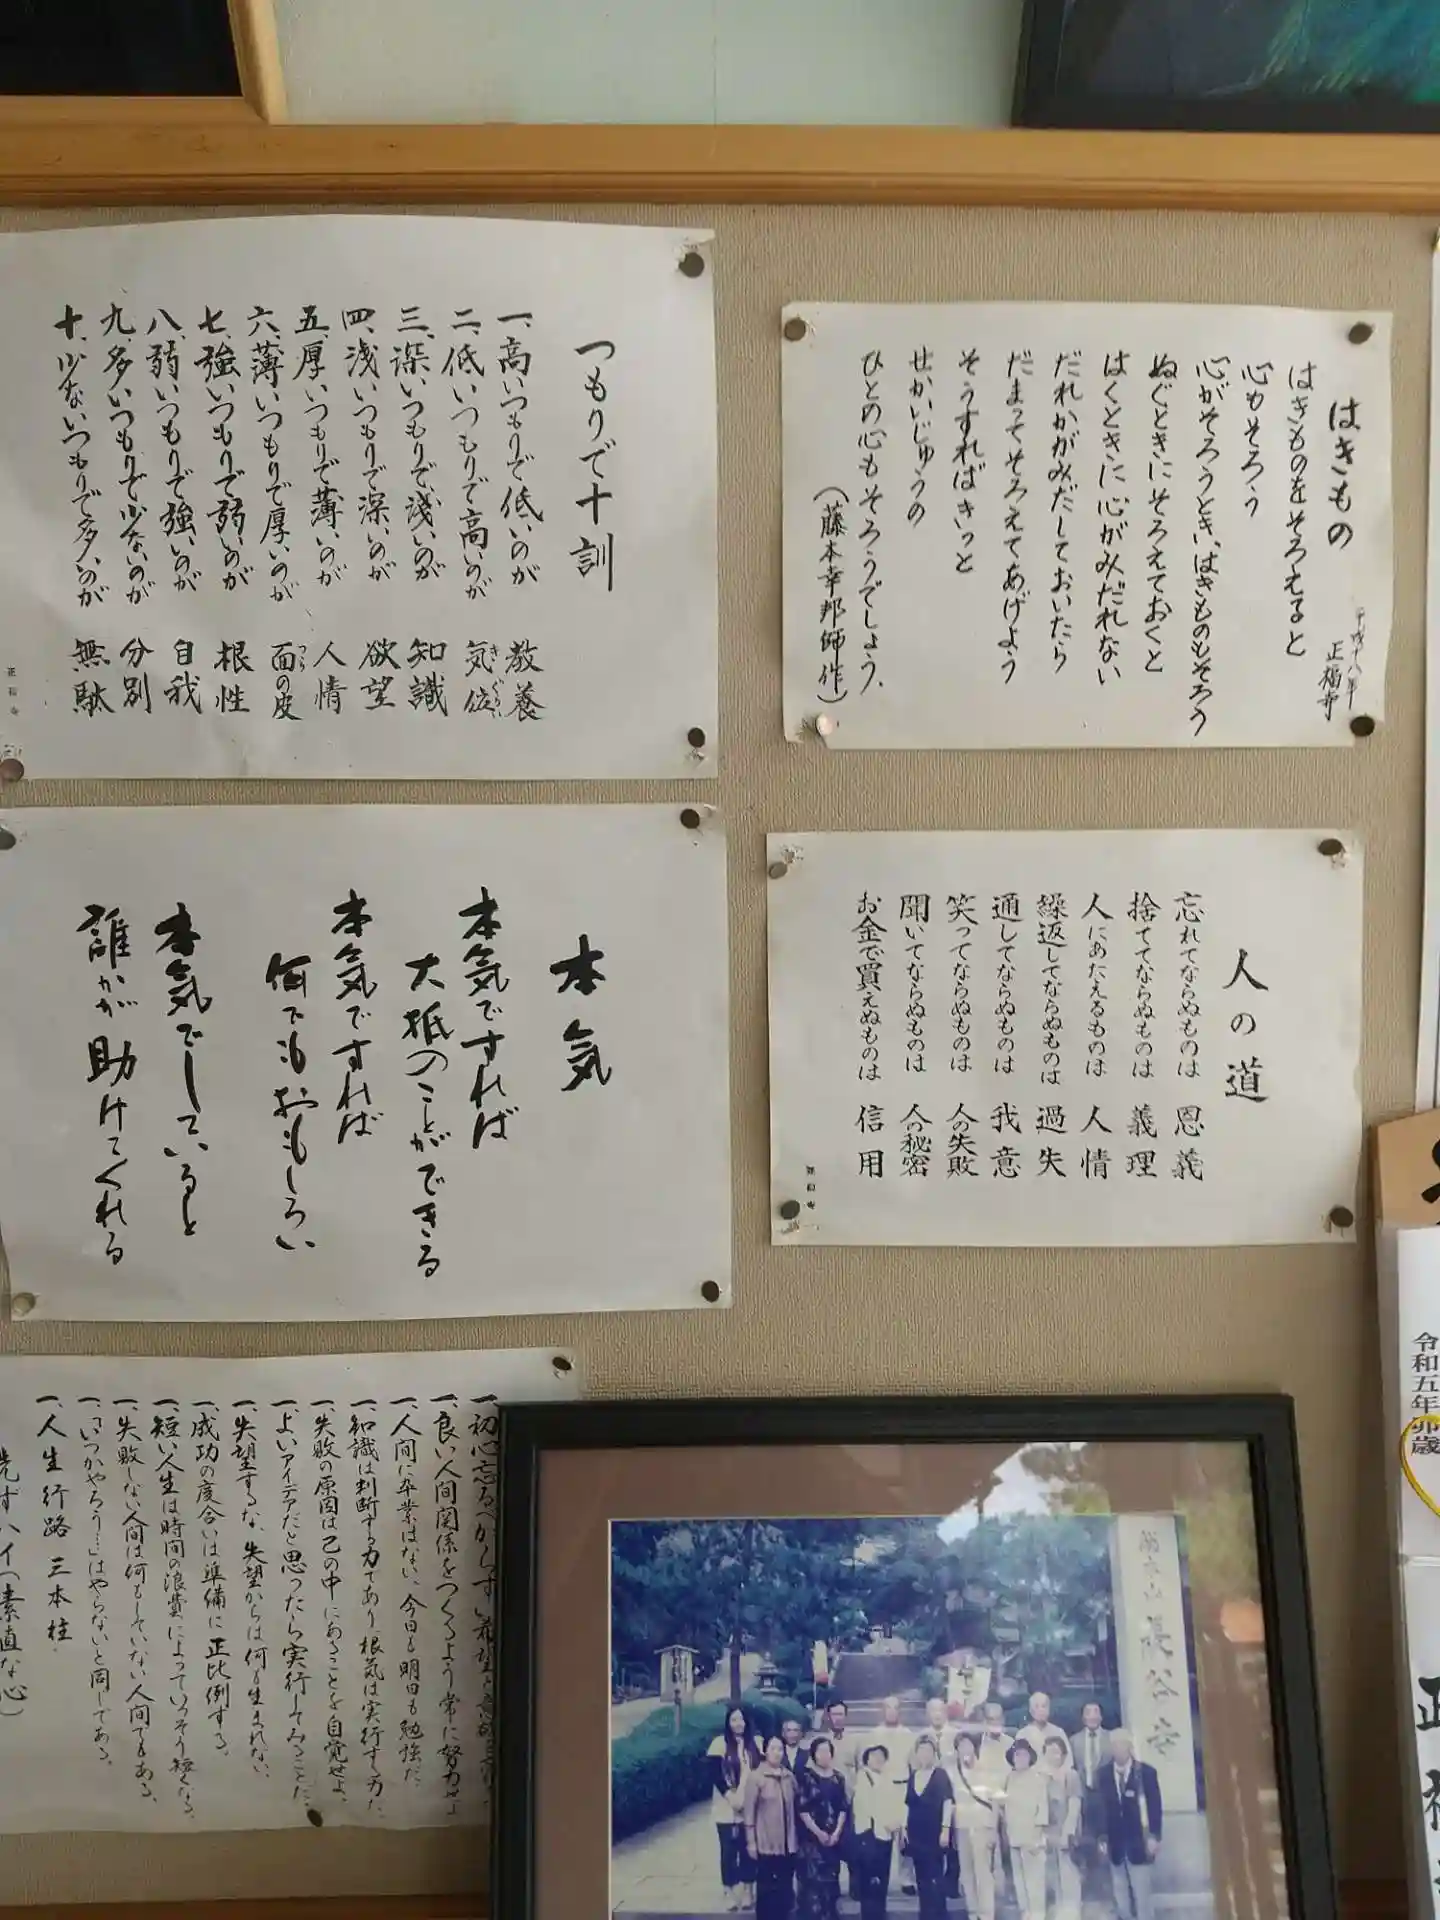 つもりで十訓
一、高いつもりで低いのが 教養
二、低いつもりで高いのが 気位
きぐらい
三、深いつもりで浅いのが 知識
四、浅いつもりで深いのが 欲望
五、厚いつもりで薄いのが 人情
六、薄いつもりで厚いのが 面の皮
つら
七、強いつもりで弱いのが 根性
八、弱いつもりで強いのが 自我
九、多いつもりで少ないのが 分別
十、少ないつもりで多いのが 無駄
正福寺
はきもの
平成十八年
正福寺
はきものをそろえると
心もそろう
心がそろうとき、はきものもそろう
ぬぐときにそろえておくと
はくときに心がみだれない
だれかがみだしておいたら
だまってそろえてあげよう
そうすればきっと
せかいじゅうの
ひとの心もそろうでしょう。
(藤本幸邦師作)
本気
本気ですれば
大抵のことができる
本気ですれば
何でもおもしろい
本気でしていると
誰かが助けてくれる
人の道
忘れてならぬものは 恩義
捨ててならぬものは 義理
人にあたえるものは 人情
繰返してならぬものは 過失
通してならぬものは 我意
笑ってならぬものは 人の失敗
聞いてならぬものは 人の秘密
お金で買えぬものは 信用
正福寺
一、初心忘るべからず
一、良い人間関係をつくるよう常に努力せよ
一、人間に卒業はない、今日も明日も勉強だ。
一、知識は判断する力であり、根気は実行する力だ。
一、失敗の原因は己の中にあることを自覚せよ。
一、よいアイデアだと思ったら実行してみることだ。
一、失望するな、失望からは何も生まれない。
一、成功の度合いは準備に正比例する。
一、短い人生は時間の浪費によっていっそう短くなる。
一、失敗しない人間は何もしていない人間でもある。
一、「いつかやろう…」はやらないと同じである。
一、人生行路 三本柱
先ずハイ(素直な心)
長谷寺
令和五年卯歳
正福